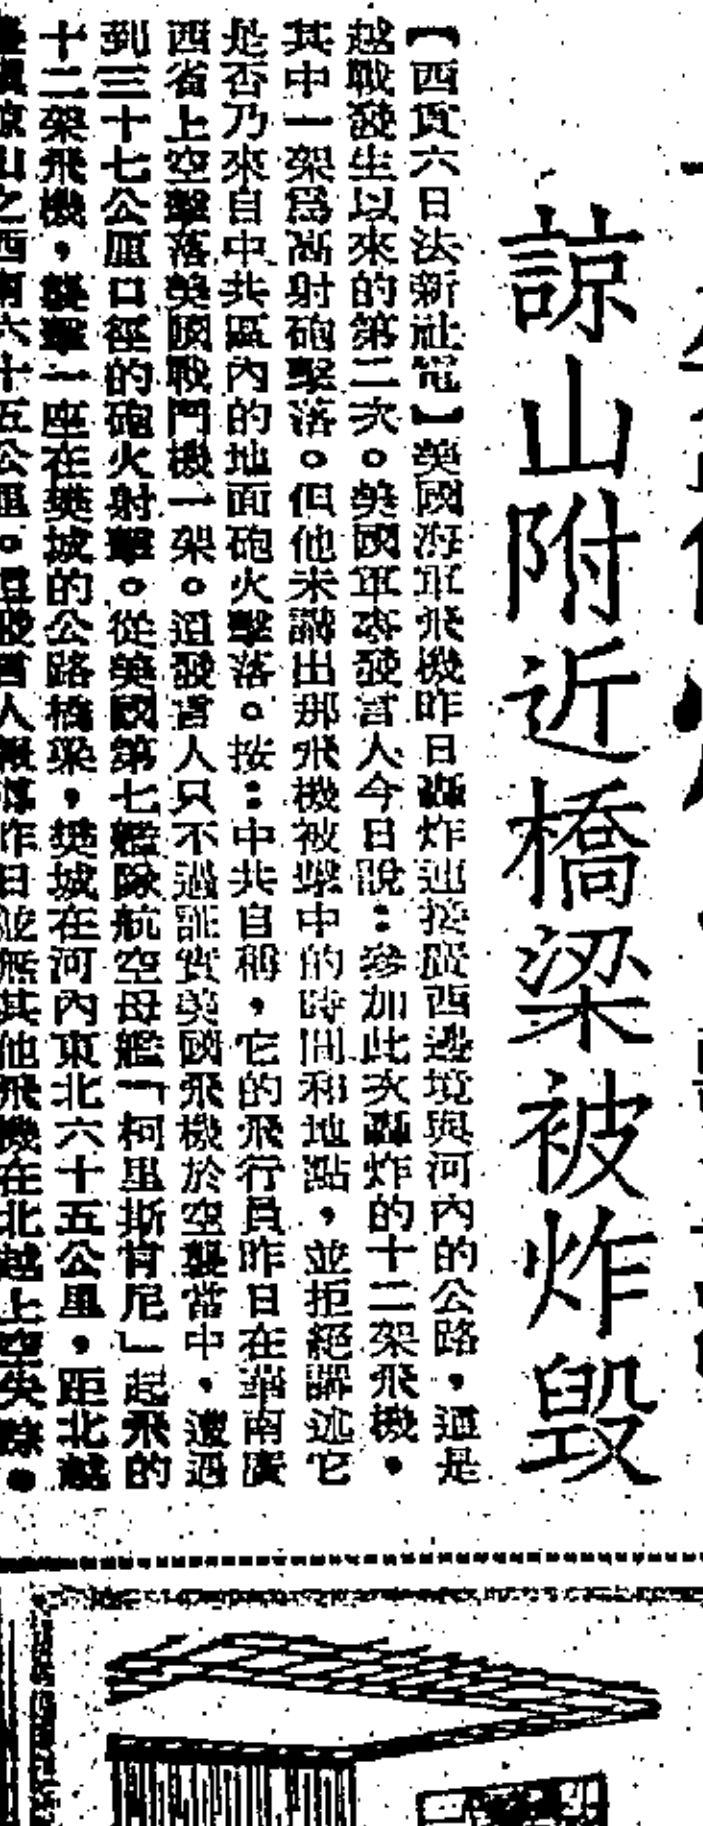 諒山附近橋梁被炸毀
【西貢六日法新社電】美國海軍飛機昨日轟炸連接廣西邊境與河內的公路，這是
越戰發生以來的第二次。美國軍事發言人今日說：參加此次轟炸的十二架飛機，
其中一架爲高射砲擊落。但他未講出那飛機被擊中的時間和地點，並拒絕講述它
是否乃來自中共區內的地面砲火擊落。按：中共自稱，它的飛行員昨日在華南廣
西省上空擊落美國戰鬥機一架。這發言人只不過証實美國飛機於空襲當中，遭遇
到三十七公厘口徑的砲火射擊。從美國第七艦隊航空母艦「柯里斯肯尼」起飛的
十二架飛機，襲擊一座在樊城的公路橋梁，樊城在河內東北六十五公里，距北越
諒山之西南六十五公里。這發言人報導昨日並無其他飛機在北越上空失踪。